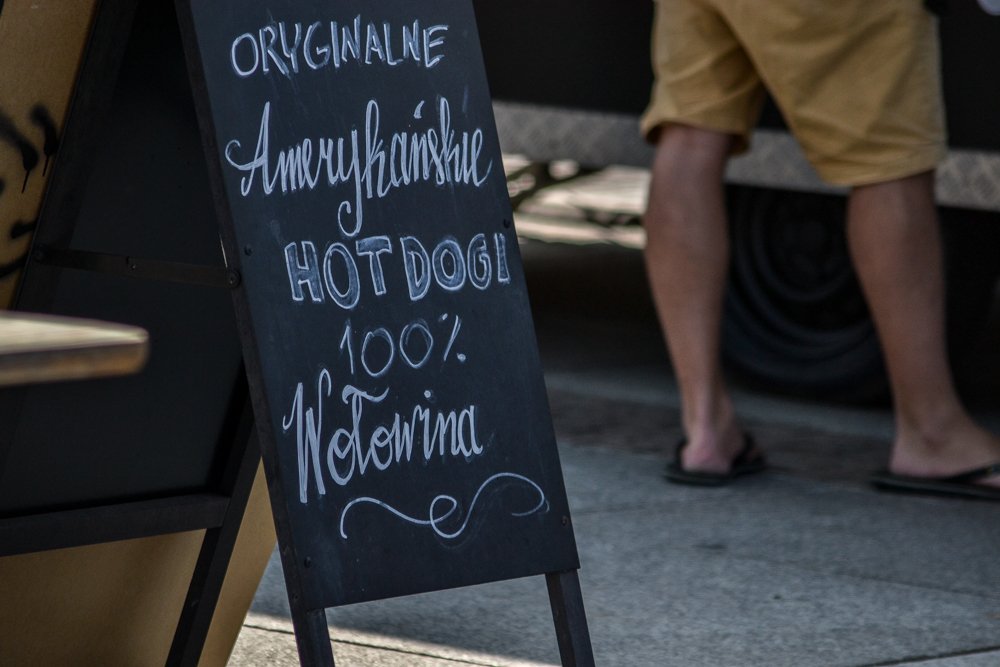 ORYGINALNE
Amerykańskie
HOT DOGI
100%
Wołowina